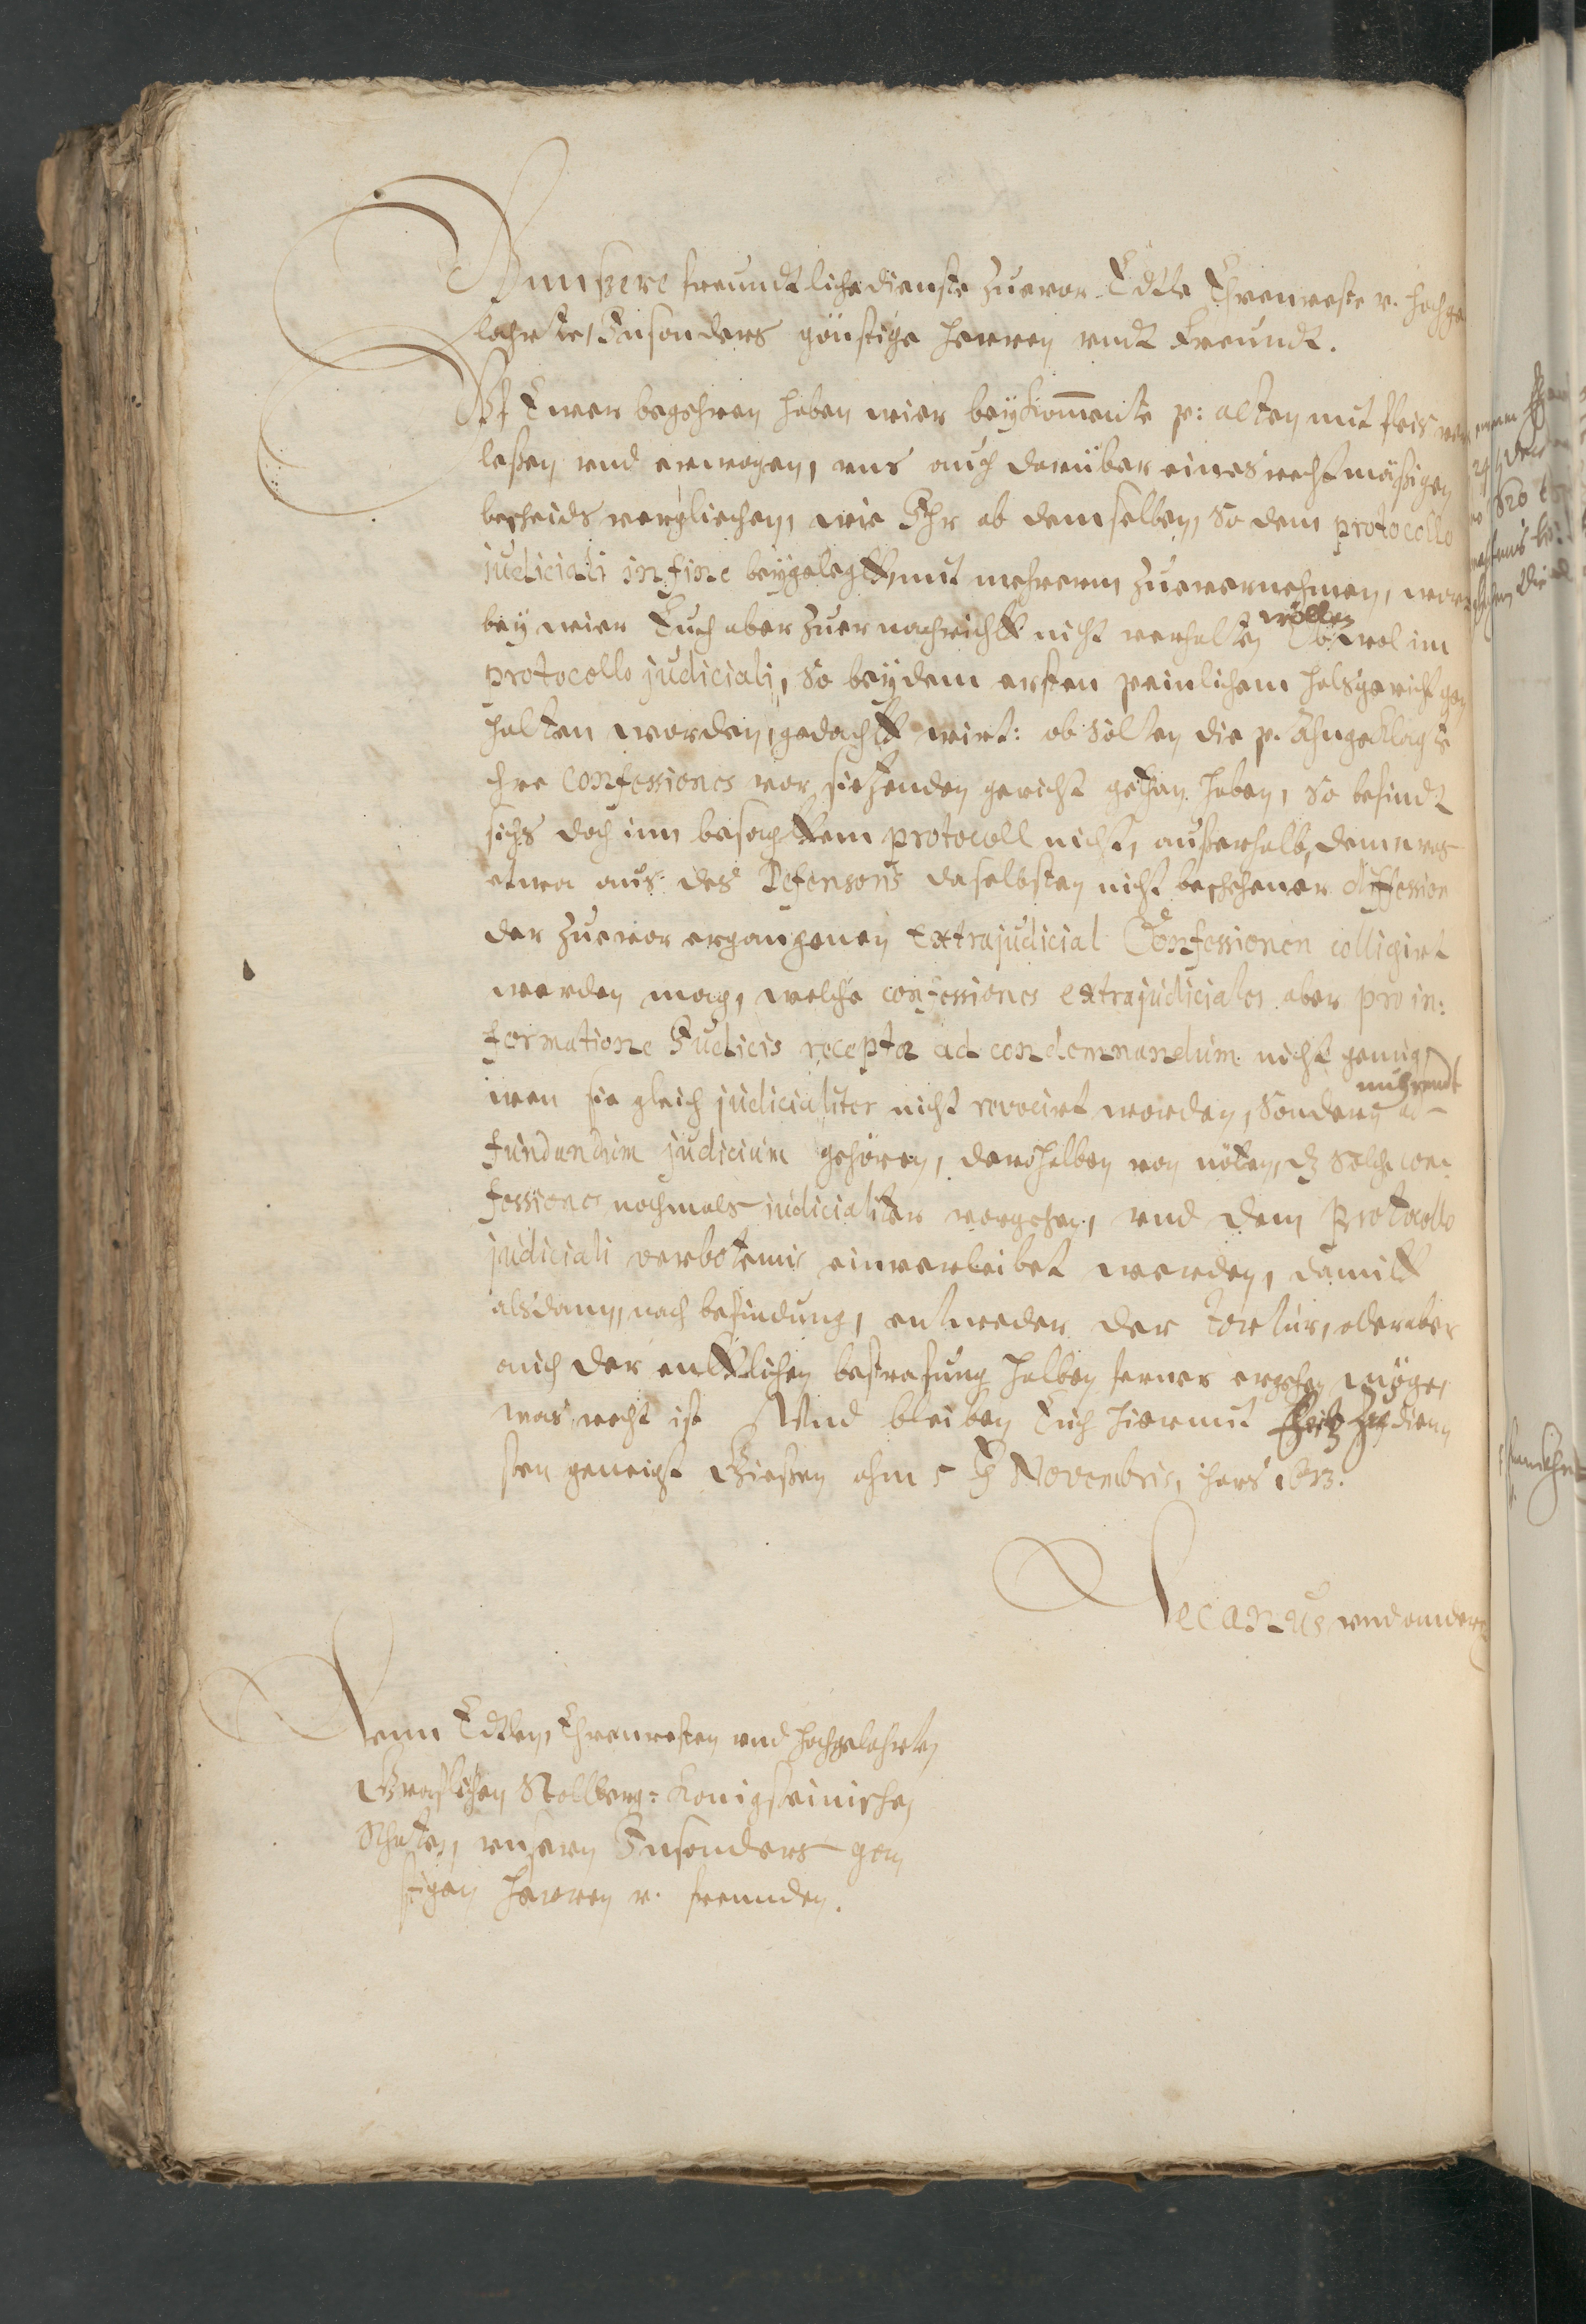 Vnnszere freundtliche dienste zuevor Edtle Ehrenveste v. hochge
lahrte, Insonders günstige herren vndt Freundt.
Vf Ewer begehren haben wier beykommente p: acten mit fleis ver
leßen vnd erwogen, vns auch darüber eines rechtmäßigen
bescheids vergliechen, wie Ihr ab demselben, so dem protocollo
judiciali in fine beygelegtt, mit mehrerm zuevernehmen, wor
bey wier Euch aber zuer nachrichtt nicht verhalten wöllen Ob wol im
protocollo judiciali, so bey dem ersten peinlichem halsgericht ge
halten worden, gedachtt wirt: ob solten die p. Ahngeklagte
ihre confessiones vor sietzenden gericht gethan haben, so befindt
sichs doch inn besagttem protocoll nicht, außerhalb, dem was
etwa aus des Defensoris daselbsten nicht beschehener diffession
der zuevor ergangenen Extrajudicial Confessionen colligirt
werden mag, welche confessiones extrajudiciales aber pro in:
formatione Judicis recepta ad condemnandum nicht genug,
wen sie gleich judicialiter nicht revocirt worden, sondern nuhrendt ad
fundandum judicium gehören, derohalben von nöten, dz solche con
fessiones nochmals judicialiter vorgehen, vnd dem Protocollo
judiciali verbotenus einverleibet werden, damitt
alsdann, nach befindung, entweder der tortur, oder aber
auch der entlichen bestrafung halben ferner ergehen möge,
was recht ist Vnd bleiben Euch hiermit zu dien
sten geneigt Gießen ahm 5 t Novembris, ihars 1613.
Decanus vnd andere
Denn Edtlen, Ehrenvesten vnd hochgelahrten
Graflichen Stollberg: Konigsteinischen
Rhäten, vnsern Insonders gön
stigen herren v. freunden.